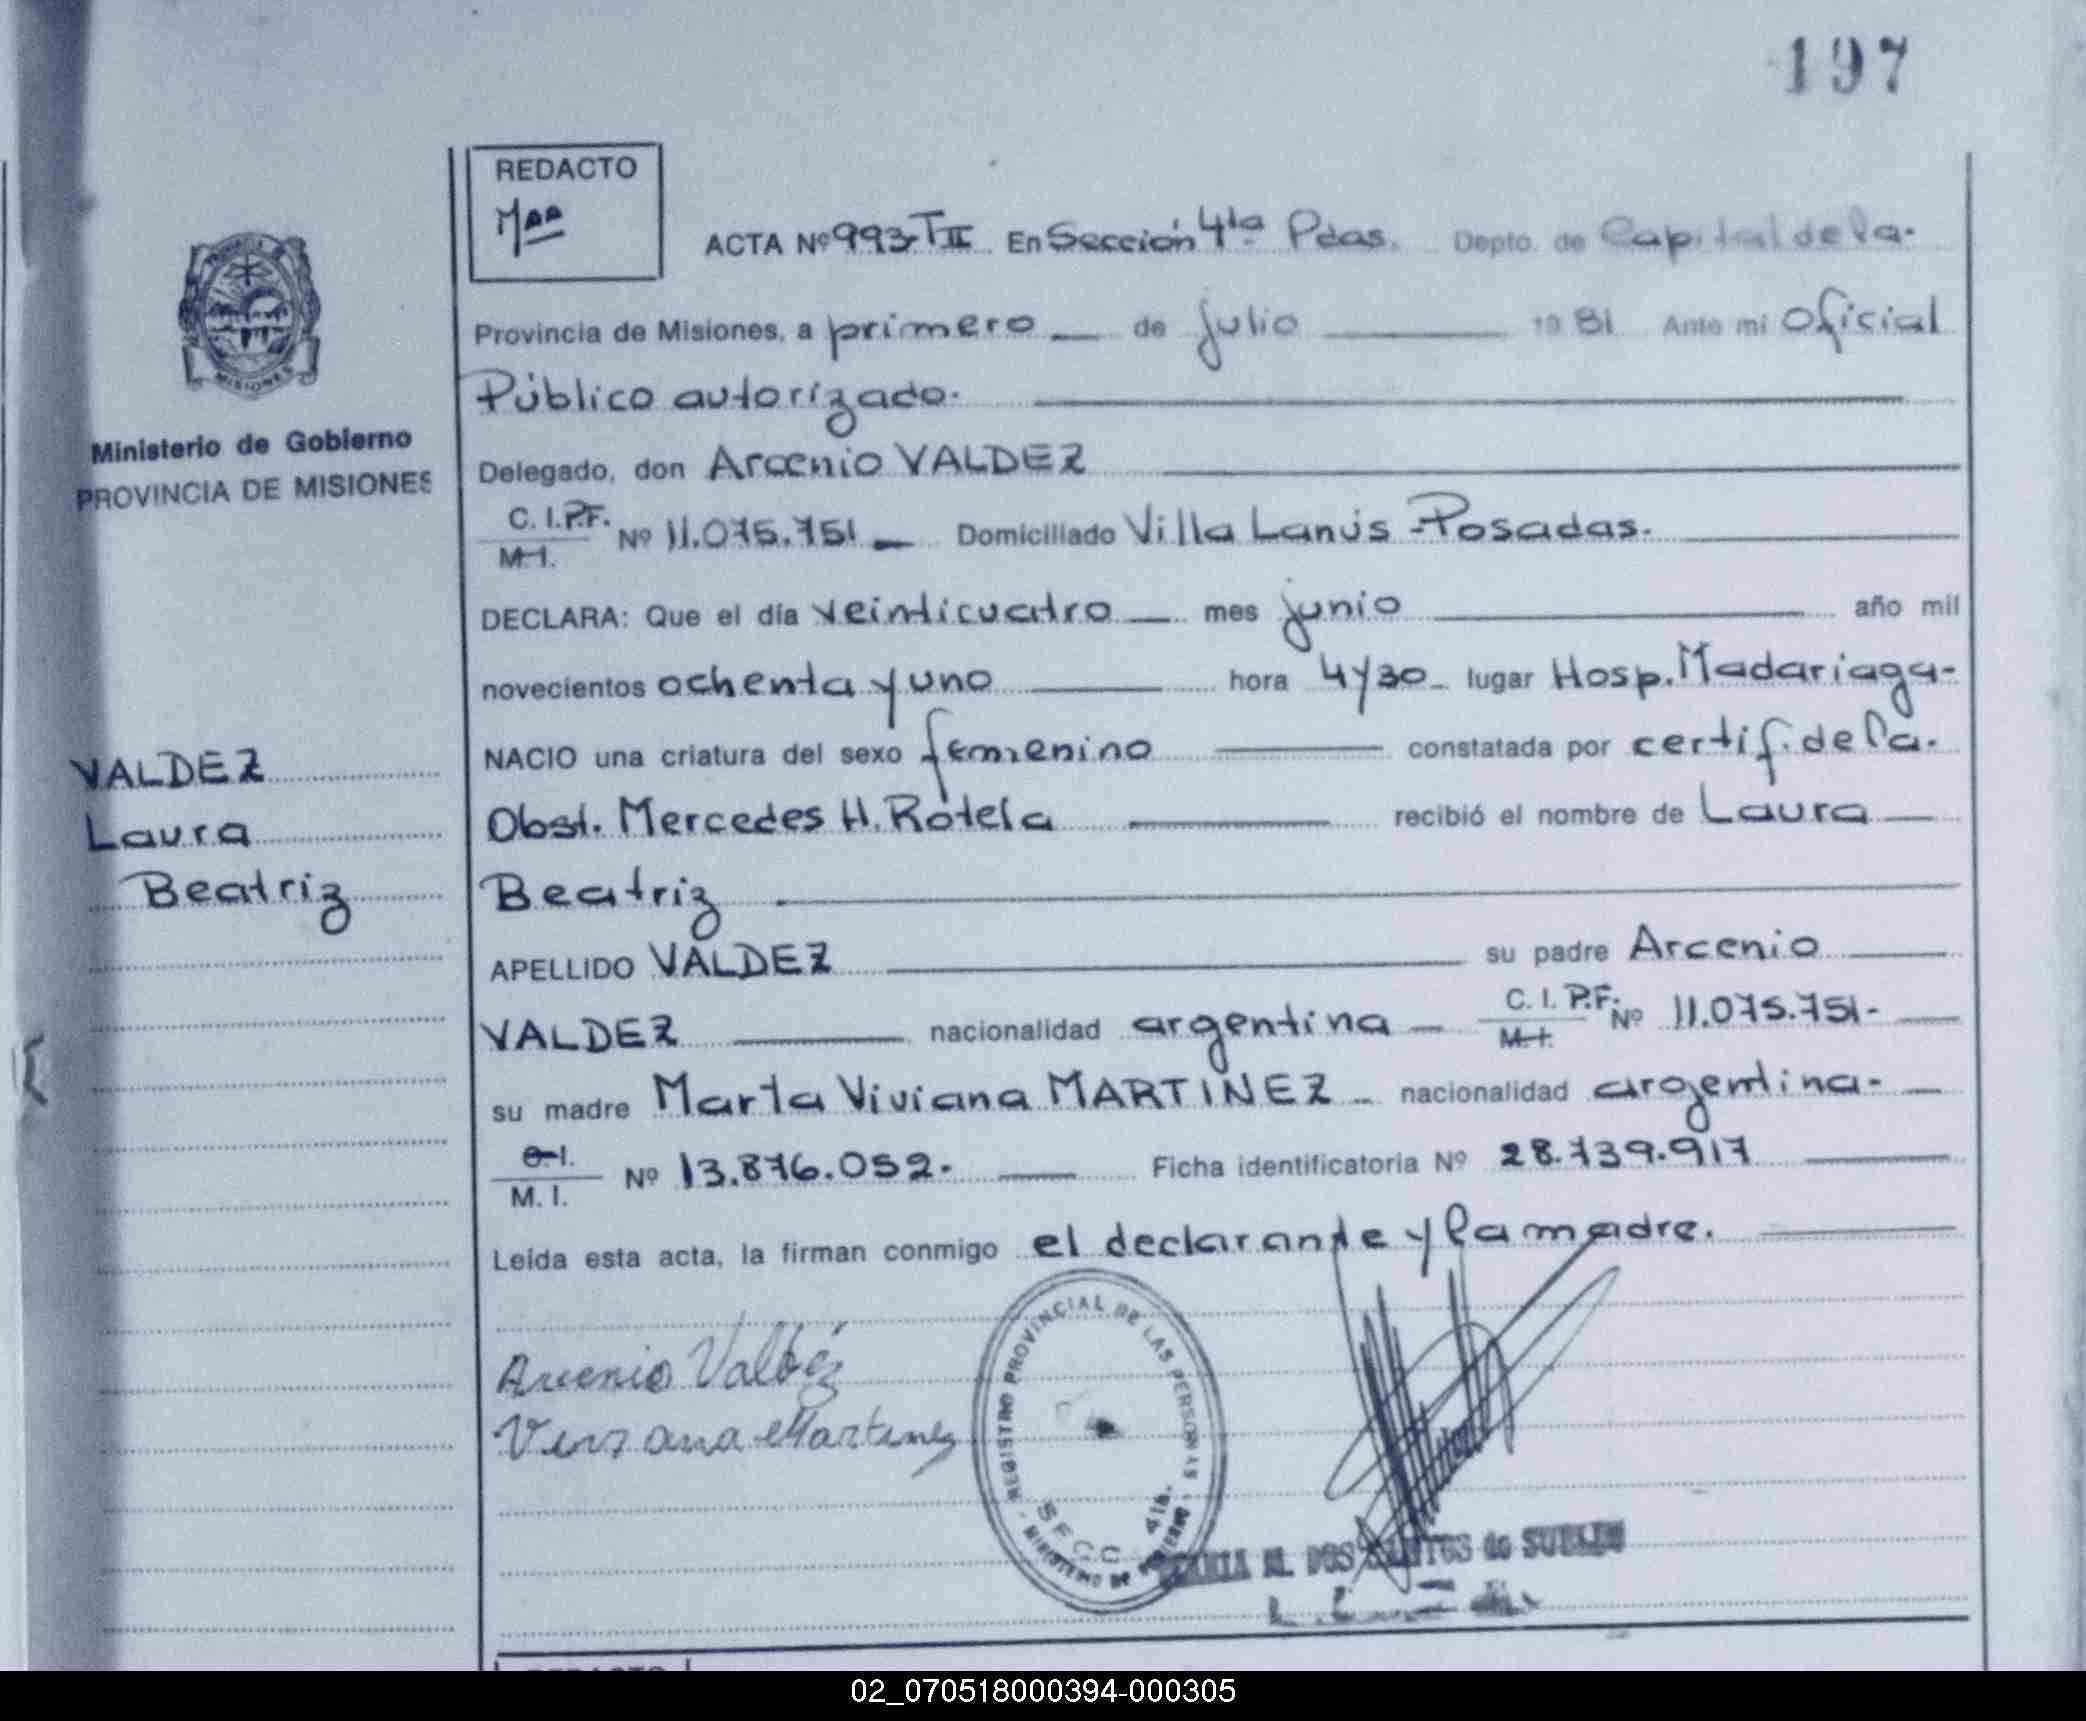 197
REDACTO
ACTA Nº 993-TII En Sección 4ta Pdas. Depto. de Capital de la.
Provincia de Misiones, a primero de julio 1981 Ante mi Oficial
Público autorizado.
Ministerio de Gobierno
PROVINCIA DE MISIONES
MISIONES
Delegado, don Arcenio VALDEZ
C. I. P.F.
M. I.
Nº 11.075.751 Domiciliado Villa Lanús - Posadas.
DECLARA: Que el día veinticuatro mes junio año mil
novecientos ochenta y uno hora 4y30 lugar Hosp. Madariaga-
NACIO una criatura del sexo femenino constatada por certif. de la.
Obst. Mercedes H. Rotela recibió el nombre de Laura
Beatriz
VALDEZ
Laura
Beatriz
APELLIDO VALDEZ su padre Arcenio
VALDEZ nacionalidad argentina C. I. P.F. Nº 11.075.751-
M. I.
su madre Marta Viviana MARTINEZ nacionalidad argentina-
C. I.
M. I.
Nº 13.876.052. Ficha identificatoria Nº 28.739.917
Leída esta acta, la firman conmigo el declarante y la madre.
Arcenio Valdéz
Viviana Martinez
REGISTRO PROVINCIAL DE LAS PERSONAS
SECC. 4ta.
MINISTERIO DE GOBIERNO
M. DOS SANTOS de
02_070518000394-000305